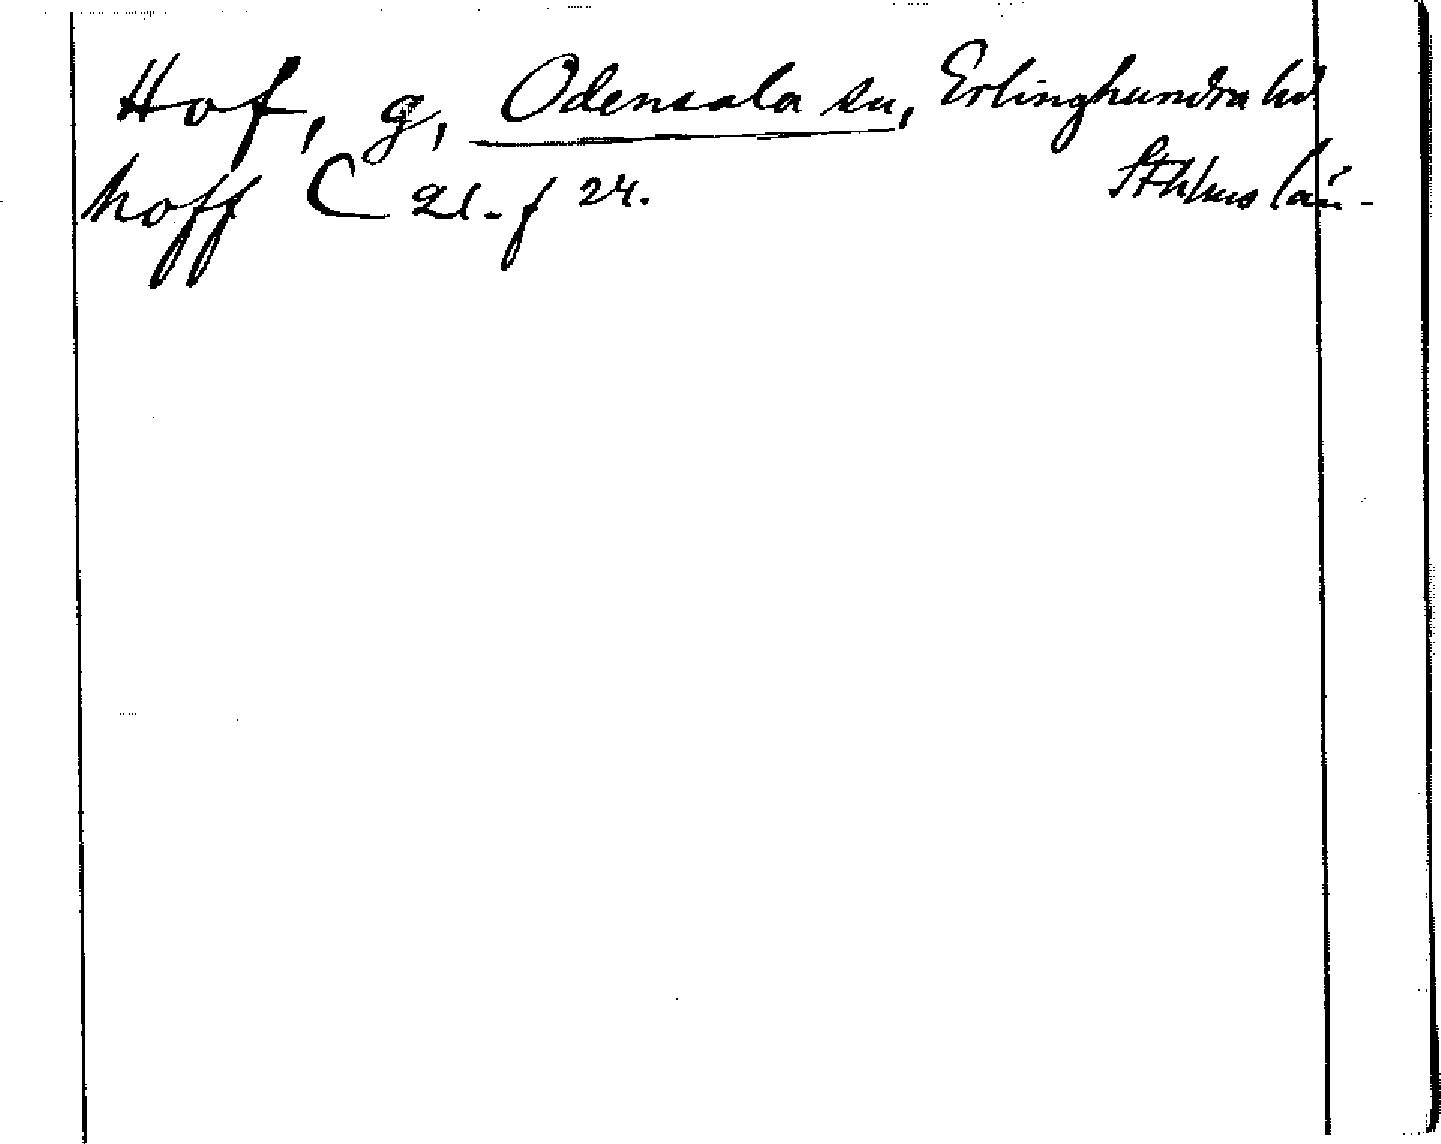 Hof, g, Odensala sn, Erlinghundra hd.
hoff C 21. f 24. Sthlms län.